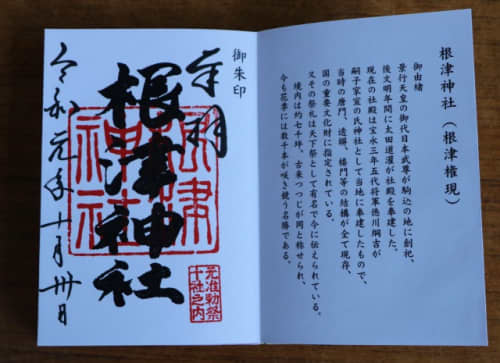 根津神社（根津権現）
御由緒
景行天皇の御代日本武尊が駒込の地に創祀、
後文明年間に太田道灌が社殿を奉建した。
現在の社殿は宝永三年五代将軍徳川綱吉が
嗣子家宣の氏神社として当地に奉建したもので、
当時の唐門、透塀、楼門等の結構が全て現存、
国の重要文化財に指定されている。
又その祭礼は天下祭として有名で今に伝えられている。
境内は約七千坪、古来つつじが岡と称せられ、
今も花季には数千本が咲き競う名勝である。
御朱印
奉拝
根津神社
元准勅祭
十社之内
令和元年十月卅日